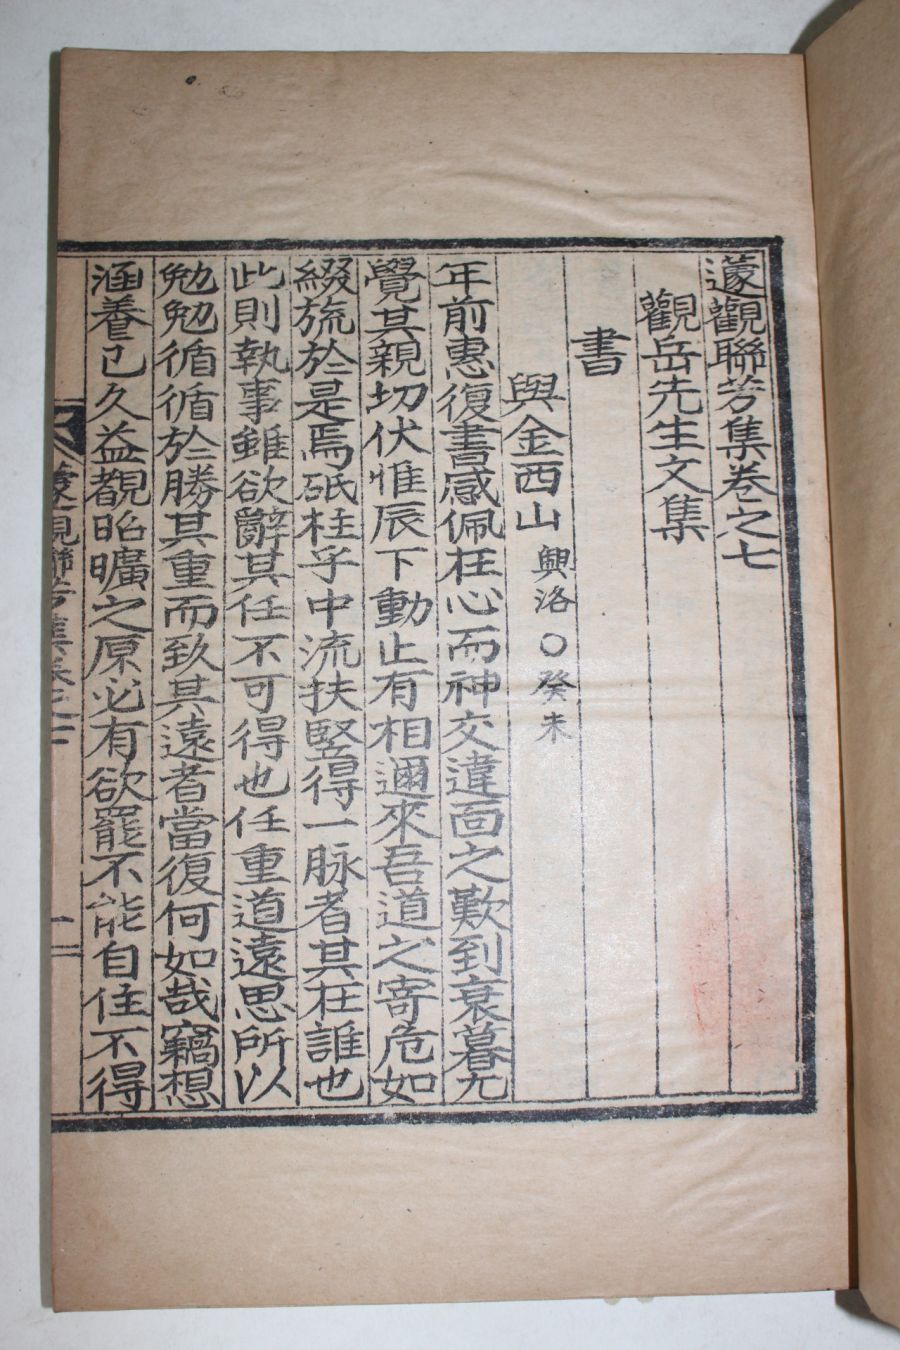 蘧觀聯芳集卷之七
觀岳先生文集
書
與金西山 興洛○癸未
年前惠復書感佩枉心而神交違面之歎到衰暮尤
覺其親切伏惟辰下動止有相邇來吾道之寄危如
綴旒於是焉砥柱乎中流扶竪得一脉者其在誰也
此則執事雖欲辭其任不可得也任重道遠思所以
勉勉循循於勝其重而致其遠者當復何如哉竊想
涵養已久益覩昭曠之原必有欲罷不能自住不得
蘧觀聯芳集卷之七
一